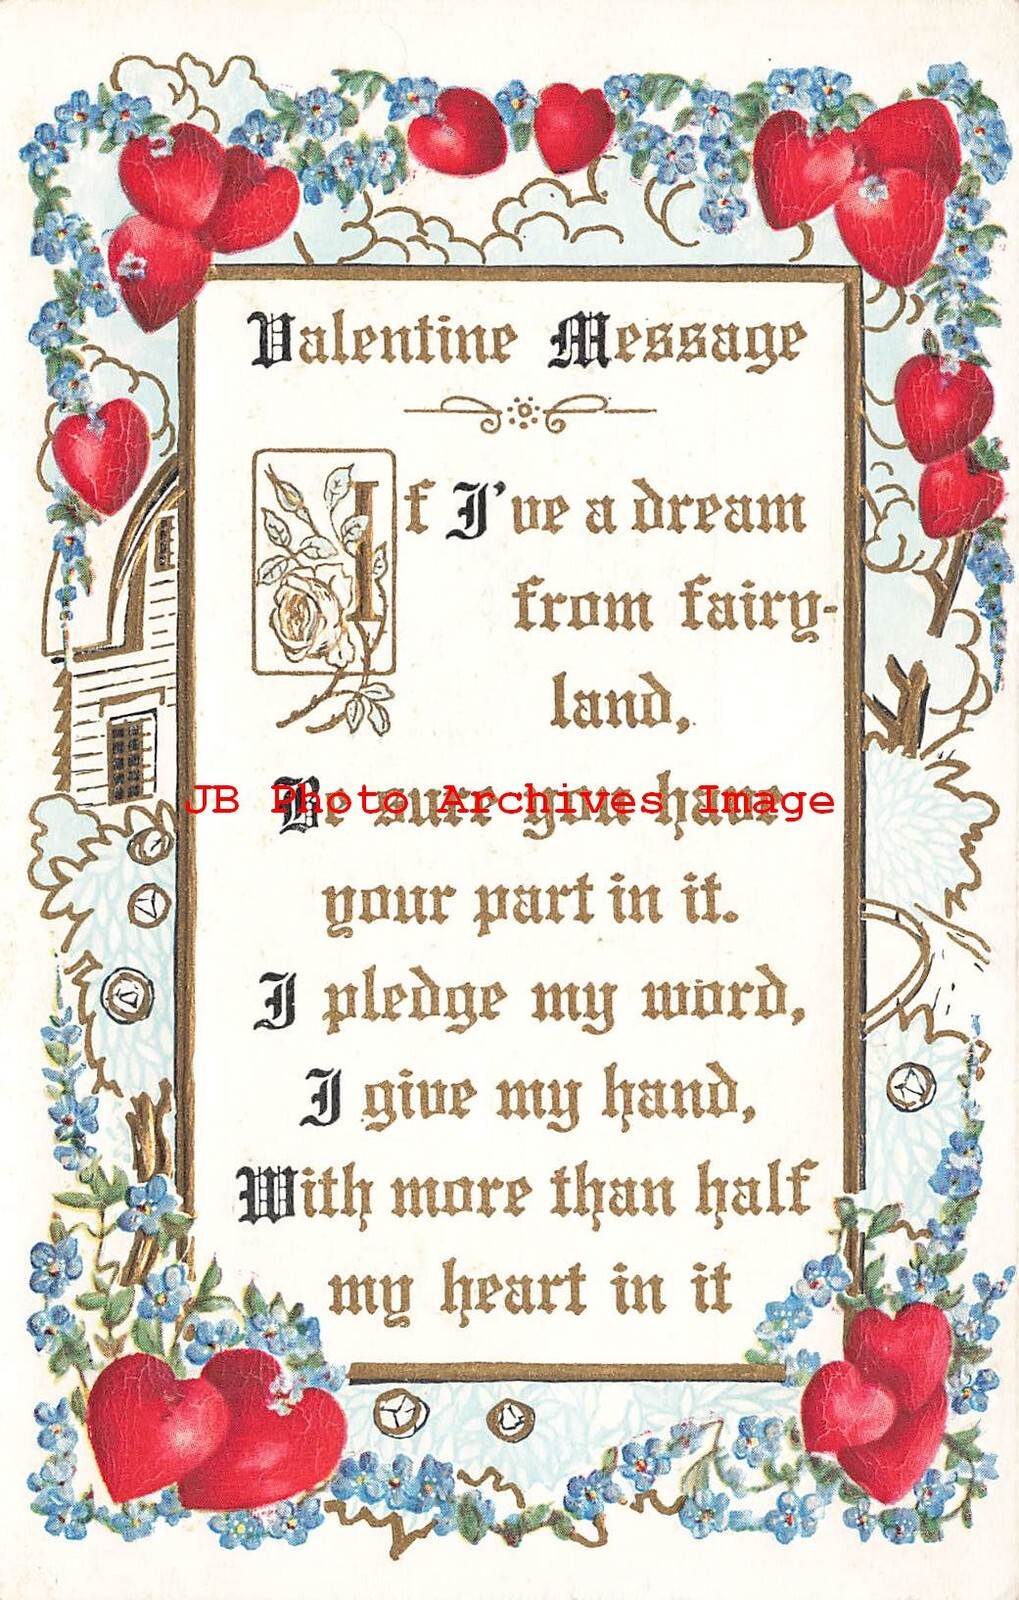 Valentine Message
If I've a dream
from fairy-
land,
Be sure you have
JB Photo Archives Image
your part in it.
I pledge my word,
I give my hand,
With more than half
my heart in it